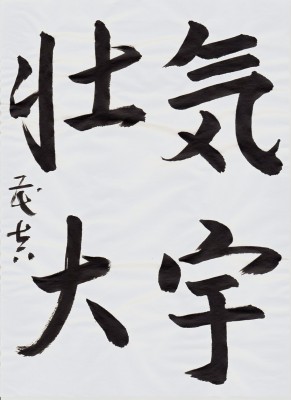 気宇
壮大